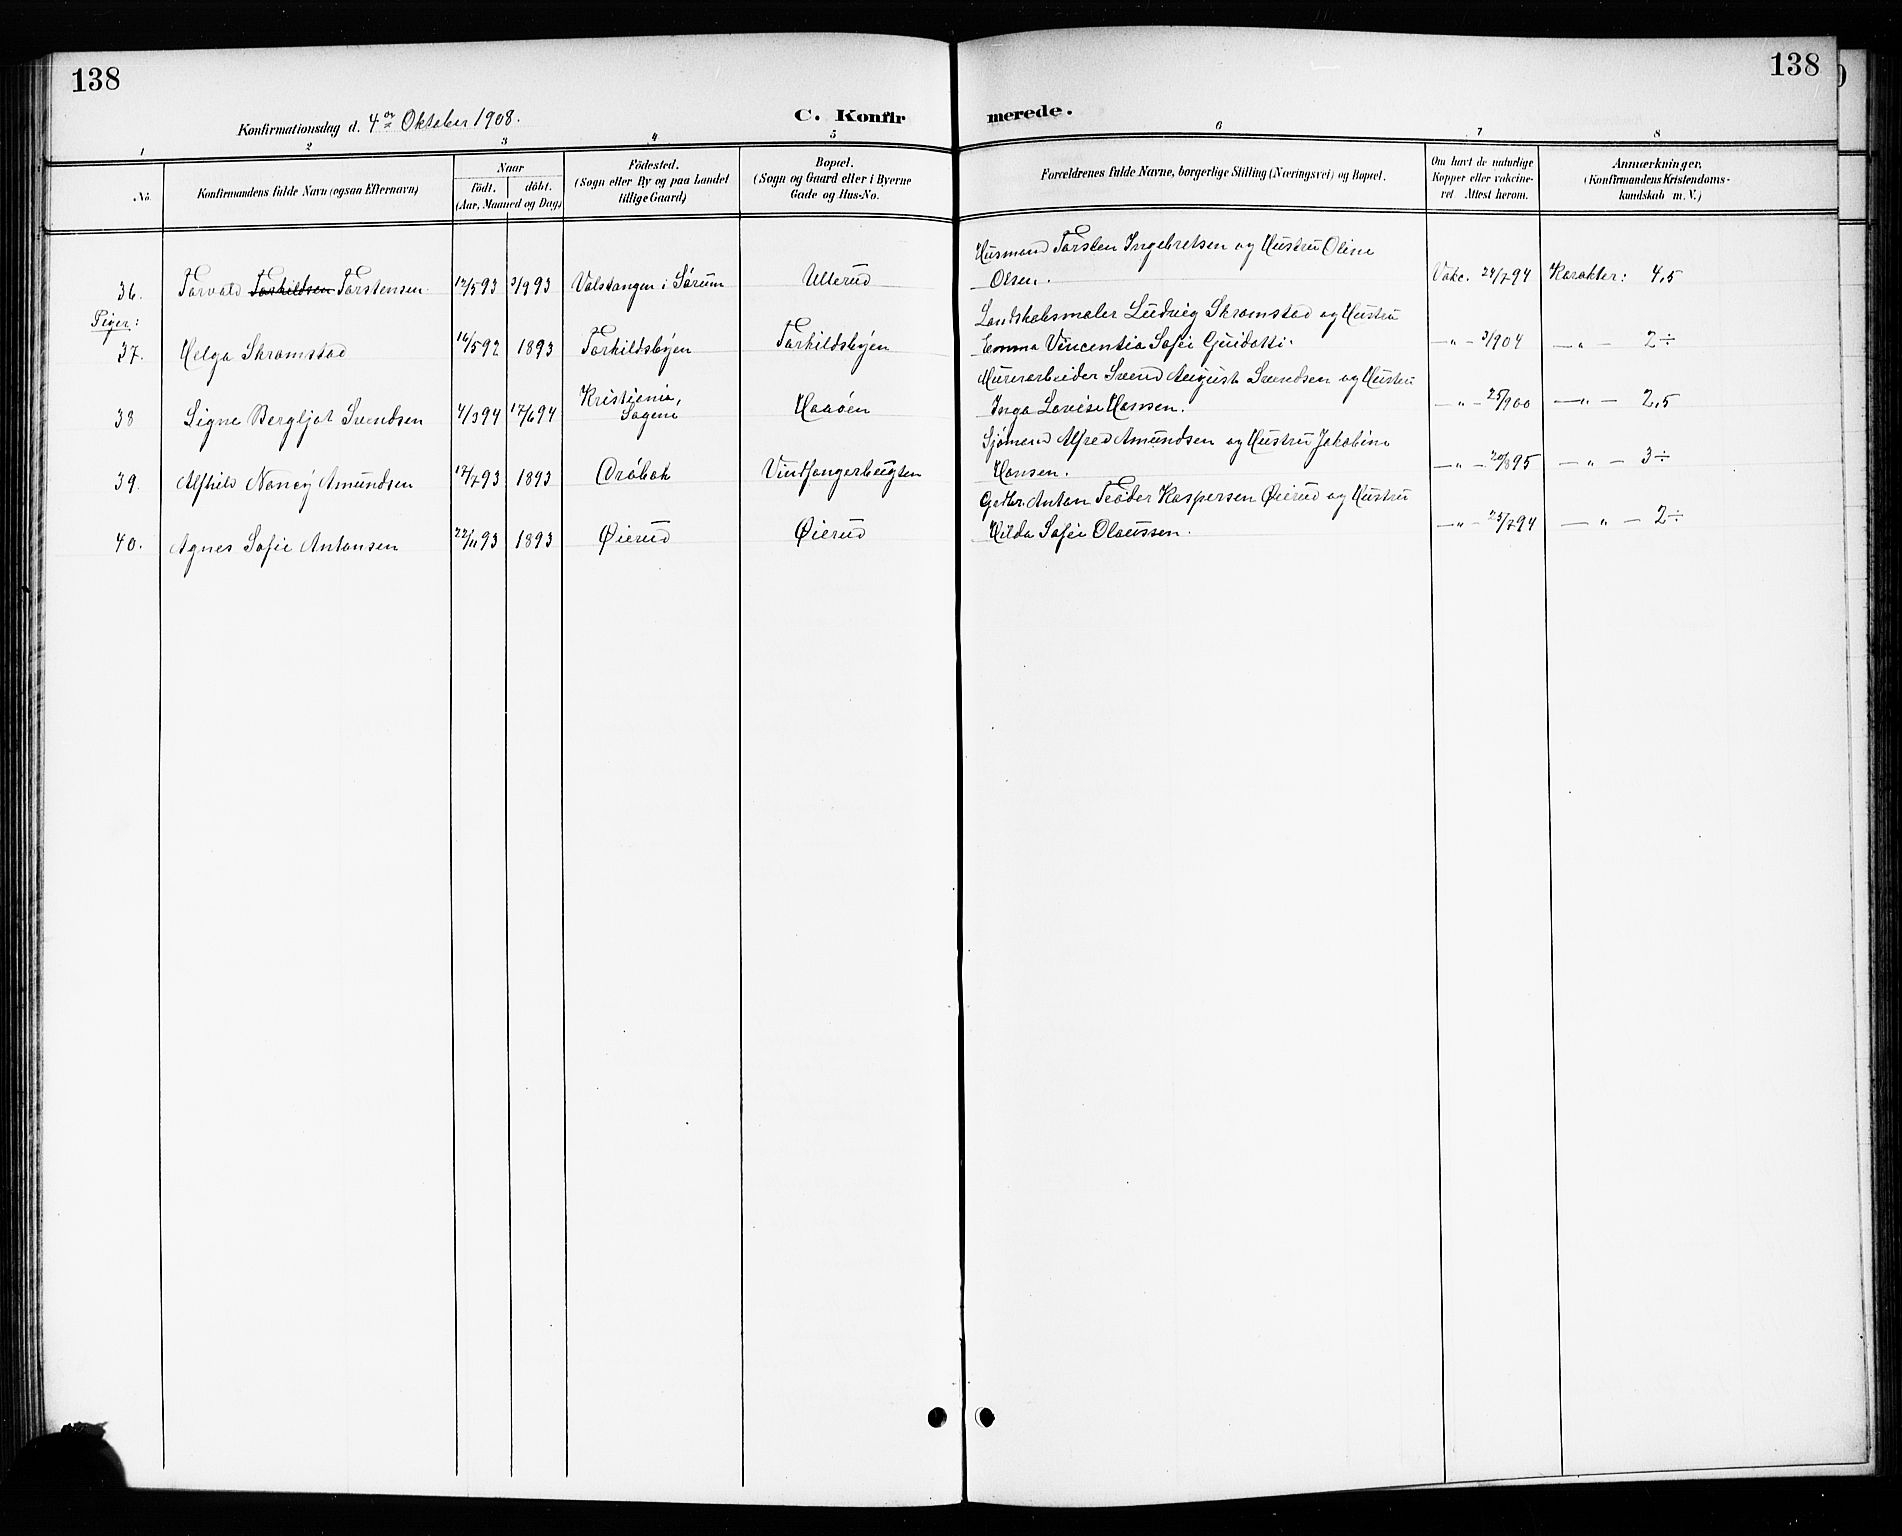 138
138
Konfirmationsdag d. 4de Oktober 1908.
C. Konfirmerede.
1 2 3 4 5 6 7 8
No.
Konfirmandens fulde Navn (ogsaa Efternavn)
Naar
født. døbt.
(Aar, Maaned og Dag)
Fødested.
(Sogn eller By og paa Landet
tillige Gaard)
Bopæl.
(Sogn og Gaard eller i Byerne
Gade og Hus-No.
Forældrenes fulde Navne, borgerlige Stilling (Næringsvei) og Bopæl.
Om havt de naturlige
Kopper eller vakcine-
ret Attest herom.
Anmærkninger.
(Konfirmandens Kristendoms-
kundskab m. V.)
Husmand Torsten Ingebretsen og Hustru Oline
36. Torvald Torkildsen Torstensen 12/5 93 3/9 93 Valstangen i Sørum Ullerud Olsen. Vakc. 24/7 94 Karakter: 4,5
Piger:
Landskabsmaler Ludvig Skramstad og Hustru
37. Helga Skramstad 16/5 92 1893 Torkildsbyen Torkildsbyen Emma Vincentia Sofie Guidotti. —"— 3/9 04 —"— 2÷
Murerarbeider Svend August Svendsen og Hustru
38 Signe Bergljot Svendsen 4/3 94 17/6 94 Kristiania, Sagene Haaøen Inga Lovise Hansen. —"— 25/9 00 —"— 2,5
Sjømand Alfred Amundsen og Hustru Jakobine
39. Alfhild Nancy Amundsen 17/7 93 1893 Drøbak Vindfangerbugten Hansen. —"— 20/8 95 —"— 3÷
Grdbr. Anton Teoder Kaspersen Øierud og Hustru
40. Agnes Sofie Antonsen 22/11 93 1893 Øierud Øierud Hilda Sofie Olaussen. —"— 25/7 94 —"— 2÷